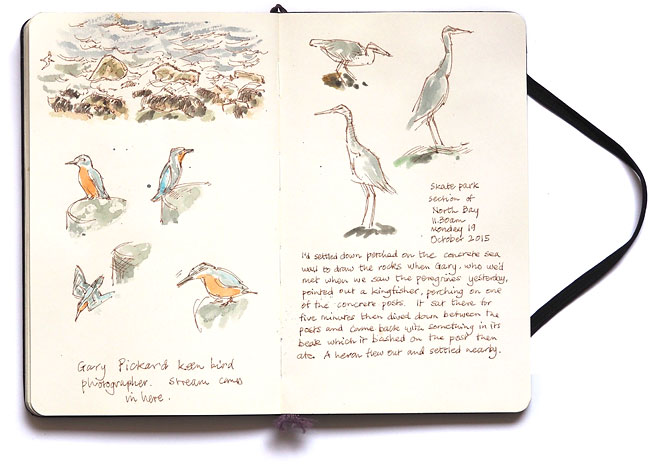 Gary Pickard keen bird
photographer. Stream comes
in here.
Skate park
section of
North Bay
11.30am
Monday 19
October 2015
I'd settled down perched on the concrete sea
wall to draw the rocks when Gary, who we'd
met when we saw the peregrines yesterday,
pointed out a kingfisher, perching on one
of the concrete posts. It sat there for
five minutes then dived down between the
posts and came back with something in its
beak which it bashed on the post then
ate. A heron flew out and settled nearby.